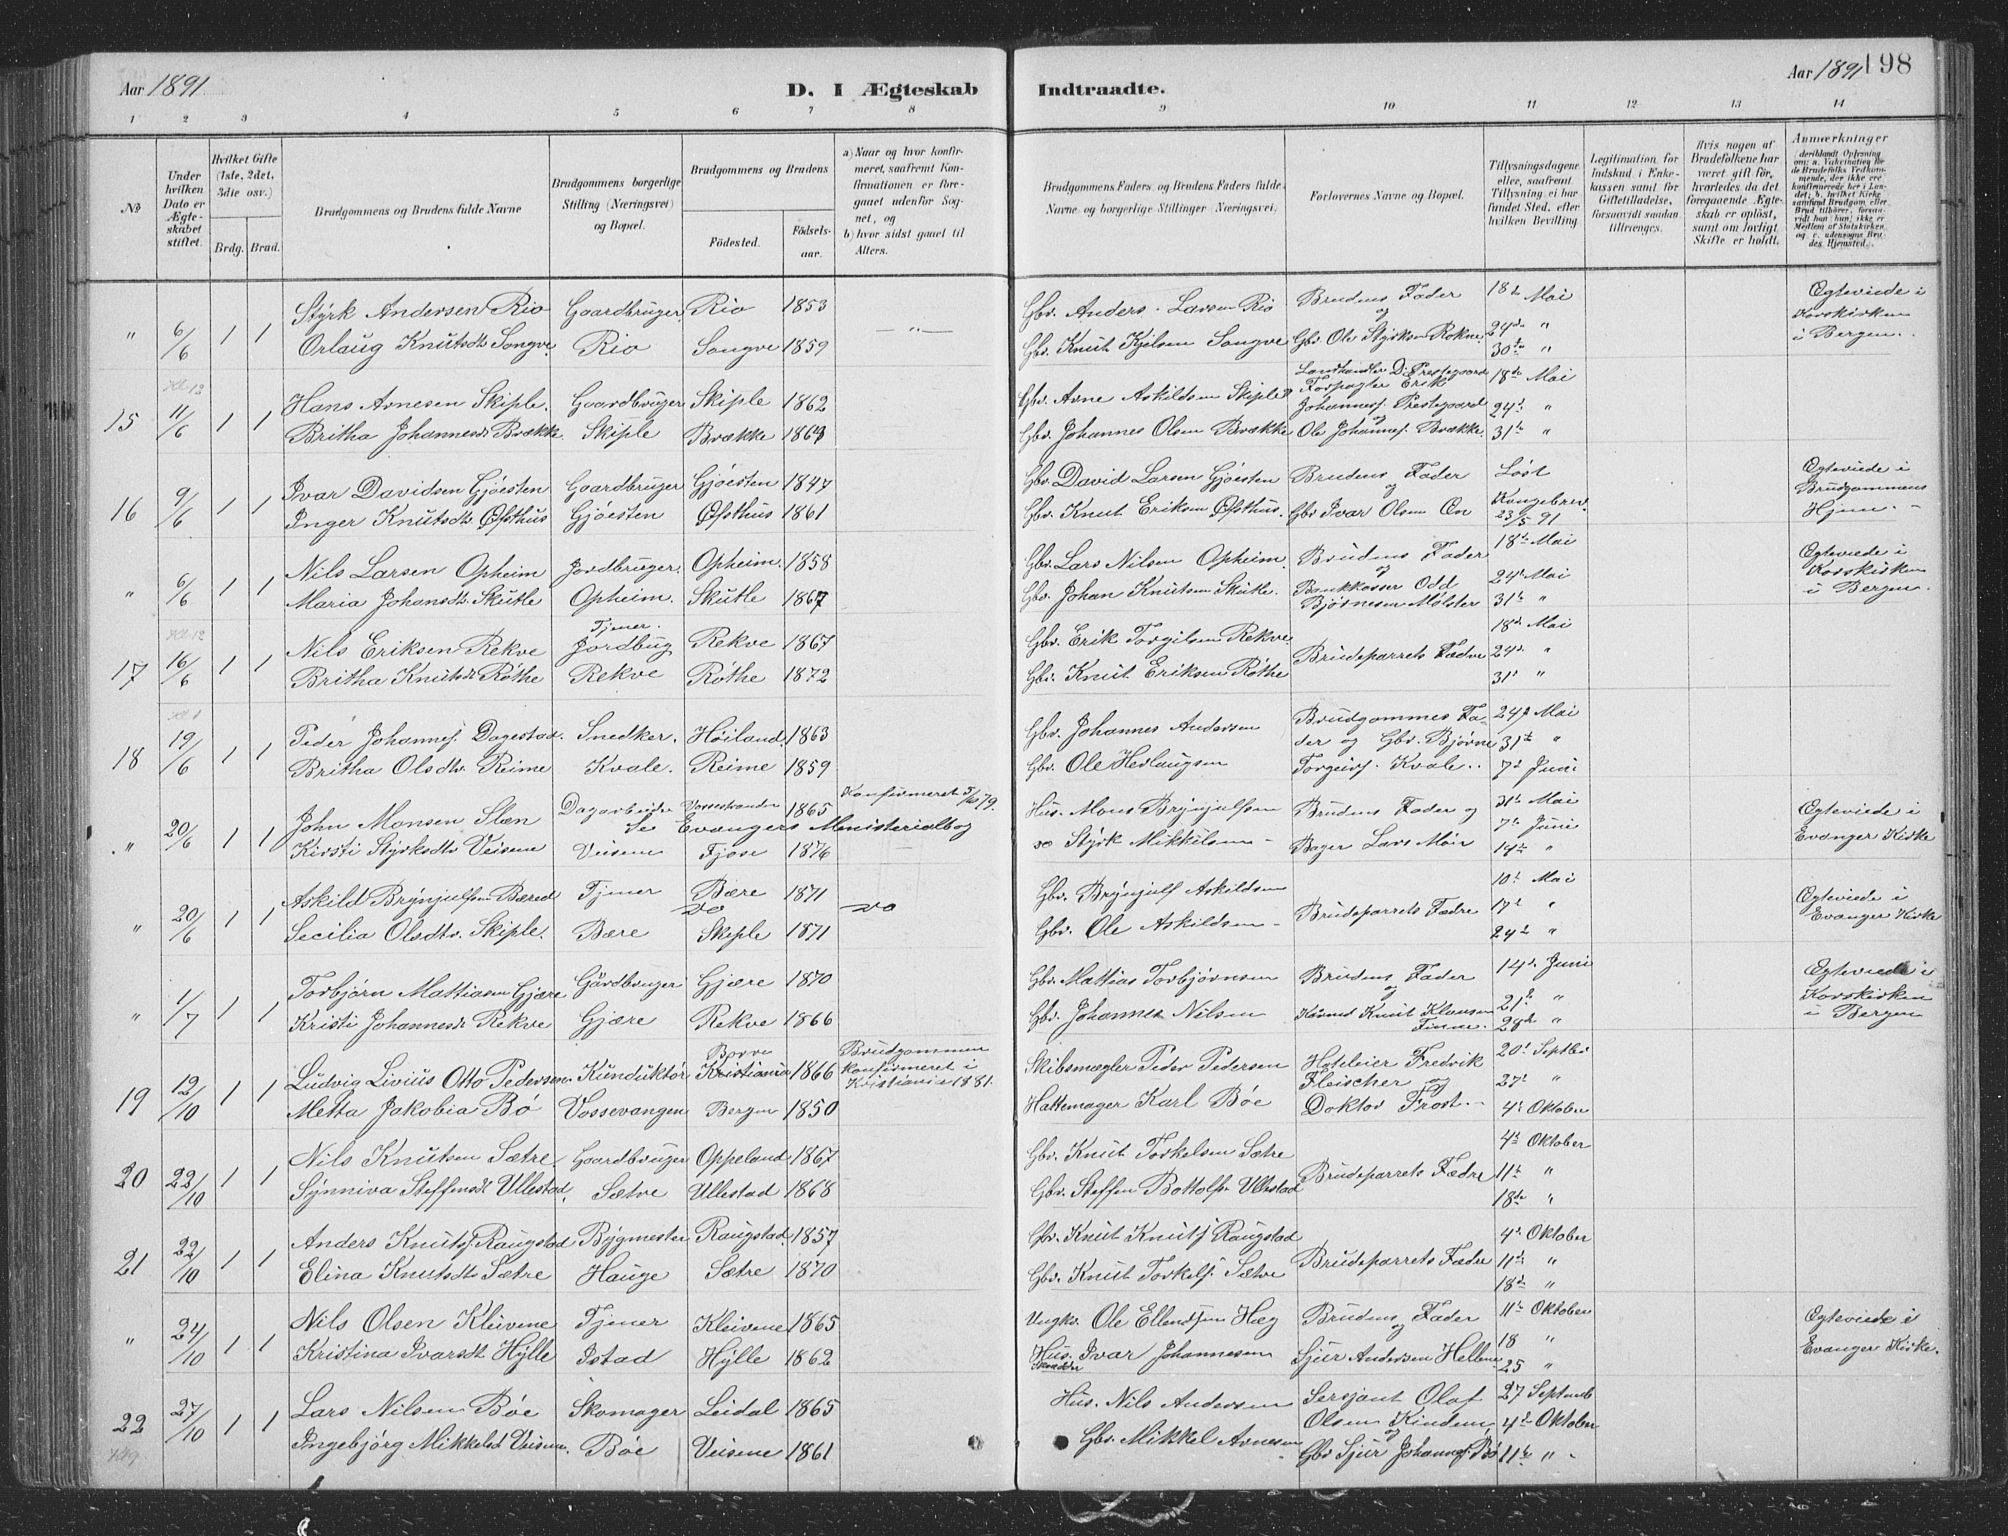 Aar 1891 D. I Ægteskab Indtraadte. Aar 1891 198
1 2 3 4 5 6 7 8 9 10 11 12 13 14
No
Under hvilken Dato er Ægteskabet stiftet.
Hvilket Gifte (1ste, 2det, 3die osv.)
Brdg. Brud.
Brudgommens og Brudens fulde Navne
Brudgommens borgerlige Stilling (Næringsvei) og Bopæl.
Brudgommens og Brudens
Födested. Födselsaar.
a) Naar og hvor konfirmeret, saafremt Konfirmationen er foregaaet udenfor Sognet, og
b) hvor sidst gaaet til Alters.
Brudgommens Faders og Brudens Faders fulde Navne og borgerlige Stillinger (Næringsvei).
Forlovernes Navne og Bopæl.
Tillysningsdagene eller, saafremt Tillysning ei har fundet Sted, efter hvilken Bevilling
Legitimation for Indskud i Enkekassen samt for Giftetilladelse, forsaavidt saadan tiltrænges.
Hvis nogen af Brudefolkene har været gift för, hvorledes da det foregaaende Ægteskab er oplöst, samt om lovligt Skifte er holdt.
Anmærkninger
" 6/6 1 1 Styrk Andersen Rio Gaardbruger Rio 1853 — " — Gbr. Anders Larsen Rio Brudens Fader 18de Mai Egteviede i
Orlaug Knutsdt. Songve. Rio Songve 1859 Gbr. Knut Kjelsen Songve og Gbr. Ole Styrksen Rokne 24de " Korskirken
30te " i Bergen.
Kl 12
15 11/6 1 1 Hans Arnesen Skiple. Gaardbruger Skiple 1862 Gbr. Arne Askildsen Skiple Landhandler D. Prestegaard 18de Mai
Forpagter Erik
Johannesf. Prestegaard 24d "
Britha Johannesdt. Brække. Skiple Brække Gbr. Johannes Olsen Brække Ole Johannesf. Brække. 31te "
16 9/6 1 1 Ivar Davidsen Gjøesten Gaardbruger Gjøesten 1847 Gbr. David Larsen Gjøesten Brudens Fader Løst Egteviede i
Inger Knutsdt. Øfsthus Gjøesten Øfsthus 1861 Gbr. Knut Eriksen Øfsthus. og Gbr Ivar Olsen Øn Kongebrev 23/5 91 Brudgommens Hjem. -
" 6/6 1 1 Nils Larsen Opheim Jordbruger. Opheim. 1858 Gbr. Lars Nilsen Opheim Brudens Fader 18de Mai Egteviede i
Maria Johansdt. Skutle Opheim. Skutle 1867 Gbr. Johan Knutsen Skutle. og Bankkasser Odd 24d Mai Korskirken
Bjørnesen Mølster 31te " i Bergen.
Kl 12
17 16/6 1 1 Nils Eriksen Rekve Tjener. Jordbrug Rekve 1867 Gbr. Erik Torgilsen Rekve 18de Mai
Britha Knutsdt. Røthe Rekve Røthe 1872 Gbr. Knut Eriksen Røthe Brudeparrets Fædre 24de "
31te "
18 19/6 1 1 Peder Johannesf. Dagestad. Snedker. Høiland. 1863 Gbr. Johannes Andersen Brudgommes Fa- 24de Mai
der og Gbr. Bjørne 31te "
Britha Olsdtr. Reime Kvale. Reime 1859 Gbr. Ole Herlaugsen Torgeirs. Kvale. 7d Juni
" 20/6 1 1 John Monsen Slæn Dagarbeider Vossestranden 1865 Konfirmeret 5/10 79. Hus. Mons Brynjulfsen Brudens Fader og 31te Mai Egteviede i
Se Evangers Ministerialbog 7de Juni
Kirsti Styrksdtr. Veisene Veisene Fjose 1876 do Styrk Mikkelsen - Bager Lars Moir 14de " Evanger Kirke
" 20/6 1 1 Askild Brynjulfsen Bæred Tjener Bære 1871 Gbr. Brynjulf Askildsen 10d Mai Egteviede i
do do Brudeparrets Fædre 17d " Evanger Kirke
Secilia Olsdtr. Skiple. Bære Skiple 1871 Gbr. Ole Askildsen - 24d "
" 1/7 1 1 Torbjørn Mattiasen Gjære Gårdbruger Gjære 1870 Gbr. Mattias Torbjørnsen Brudens Fader 14de Juni Egteviede i
Kristi Johannesdt. Rekve Gjære Rekve 1866 Gbr. Johannes Nilsen og Knut Klausen 21d " Korskirken
Finne. 28de " i Bergen
19 12/10 1 1 Ludvig Livius Otto Pedersen. Kunduktør Borre Kristiania 1866 Brudgommen konfirmeret i Kristiania 1881. Skibsmægler Peder Pedersen Hoteleier Fredrik 20d Septbr
Fleischer og 27d "
Metta Jakobia Bö Vossevangen Bergen 1850 Hattemager Karl Böe Doktor Frost.- 4d Oktober
20 22/10 1 1 Nils Knutsen Sætre Gaardbruger Oppeland 1867 Gbr. Knut Torkelsen Sætre 4d Oktober
Brudeparrets Fædre 11te "
Synniva Steffensdt Ullestad. Sætre Ullestad 1868 Gbr. Steffen Bottolfs. Ullestad 18de "
21 22/10 1 1 Anders Knutsf. Raugstad Bygmester Raugstad. 1857 Gbr. Knut Knutsf Raugstad 4d Oktober
Brudeparrets Fædre 11te "
Elina Knutsdt Sætre Hauge Sætre 1870 Gbr. Knut Torkelsf Sætre 18de "
" 24/10 1 1 Nils Olsen Kleivene Tjener Kleivene 1865 Ungk. Ole Ellendsen Hæg Brudens Fader 11te Oktober Egteviede i
Kristina Ivarsdt. Hylle Istad Hylle 1862 Hus. Skrædder Ivar Johannesen og Sjur Andersen Hellene 18 " Evanger Kirke.
25 "
22 27/10 1 1 Lars Nilsen Böe Skomager Leidal 1865 Hus. Nils Andersen Sersjant Olaf 27 Septemb
Olsen Kindem 4d Oktober
Ingebjörg Mikkelsd Veisene. Böe Veisene 1861 Gbr. Mikkel Arnesen og Gbr Sjur Johannesf. Bö 11te "